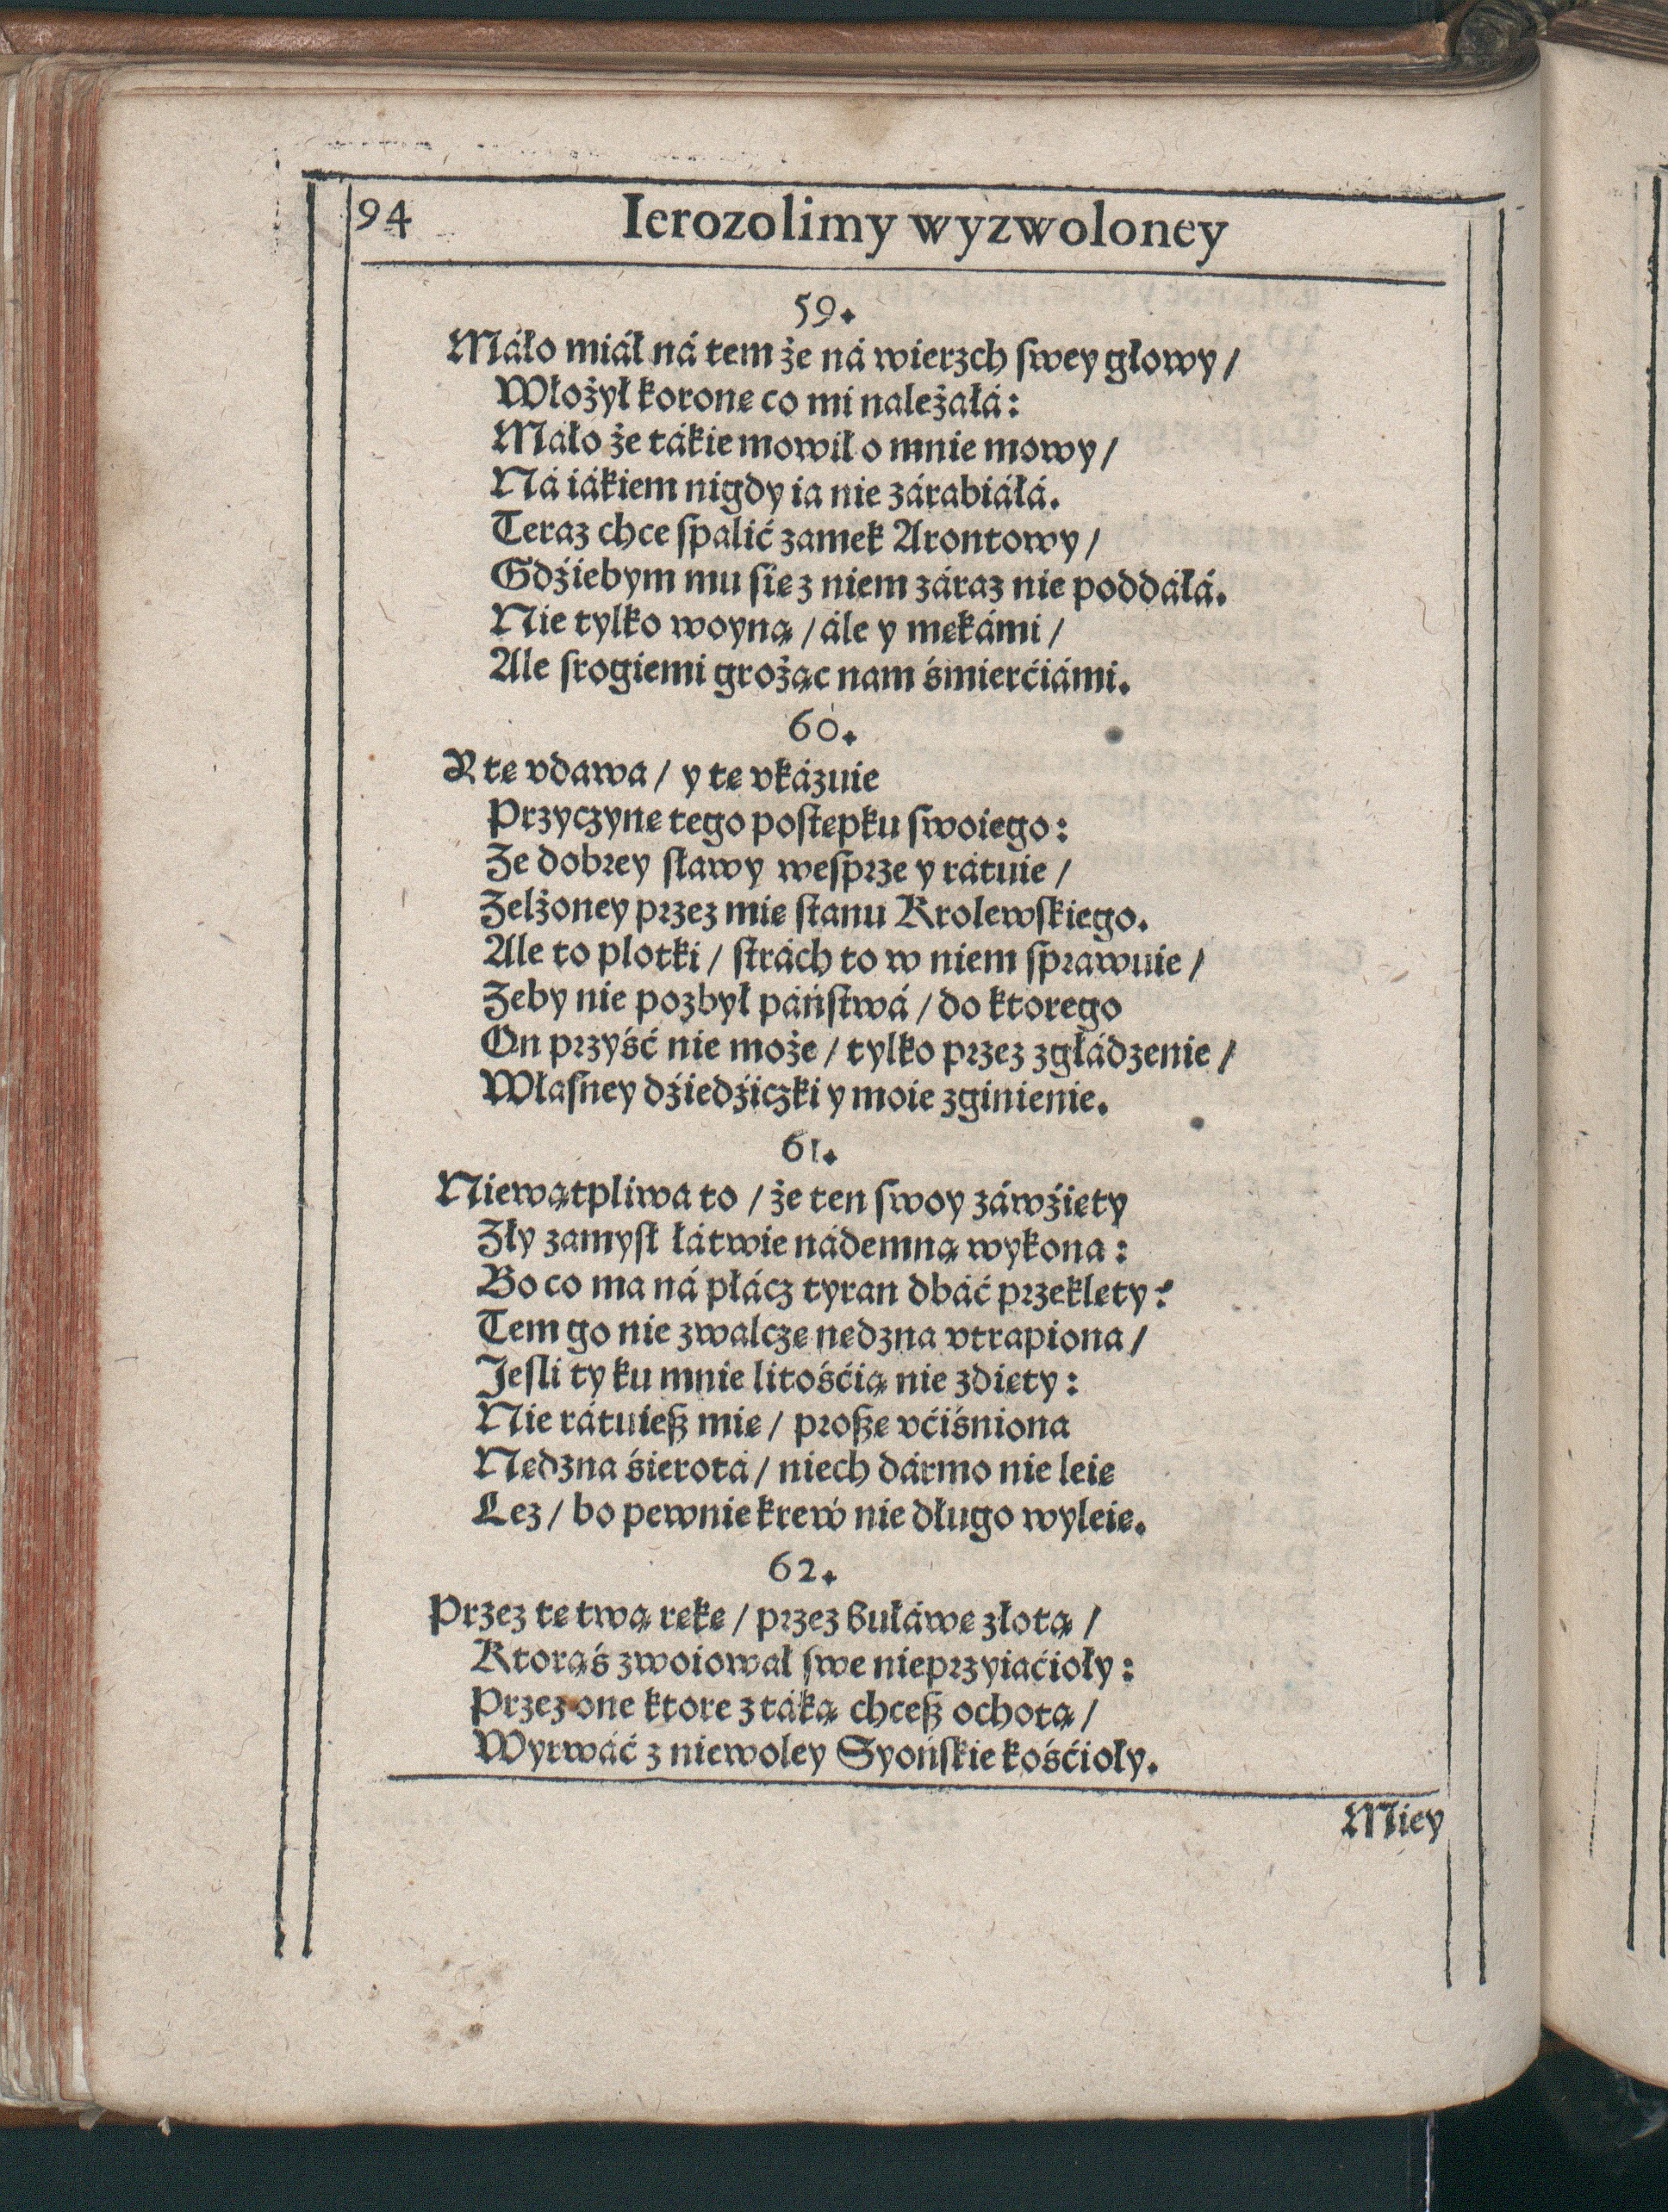 94 Ierozolimy wyzwoloney
59.
Máło miáł ná tem że ná wierzch ſwey głowy /
Włożył koronę co mi należałá:
Máło że tákie mowił o mnie mowy /
Ná iákiem nigdy ia nie zárabiáłá.
Teraz chce ſpalić zamek Arontowy /
Gdźiebym mu ſię z niem záraz nie poddáłá.
Nie tylko woyną / ále y mękámi /
Ale ſrogiemi grożąc nam śmierćiámi.
60.
Y tę vdawa / y tę vkázuie
Przyczynę tego poſtępku ſwoiego:
Ze dobrey ſławy weſprze y rátuie /
Zelżoney przez mię ſtanu Krolewſkiego.
Ale to plotki / ſtrách to w niem ſprawuie /
Zeby nie pozbył páńſtwá / do ktorego
On przyść nie może / tylko przez zgłádzenie /
Właſney dźiedźiczki y moie zginienie.
61.
Niewątpliwa to / że ten ſwoy záwźięty
Zły zamyſł łátwie nádemną wykona:
Bo co ma ná płácz tyran dbáć przeklęty?
Tem go nie zwalczę nędzna vtrapiona /
Jeſli ty ku mnie litośćią nie zdięty:
Nie rátuieß mię / proßę vćiśniona
Nędzna śierotá / niech dármo nie leię
Lez / bo pewnie kreẃ nie długo wyleię.
62.
Przez tę twą rękę / przez buławę złotą /
Ktorąś zwoiował ſwe nieprzyiaćioły:
Przez one ktore z táką chceß ochotą /
Wyrwáć z niewoley Syońſkie kośćioły.
Miey